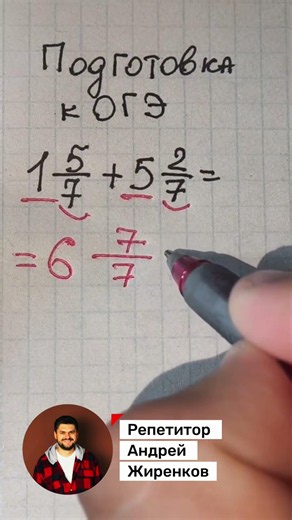 Подготовка
к ОГЭ
1 5/7 + 5 2/7 =
= 6 7/7
Репетитор
Андрей
Жиренков